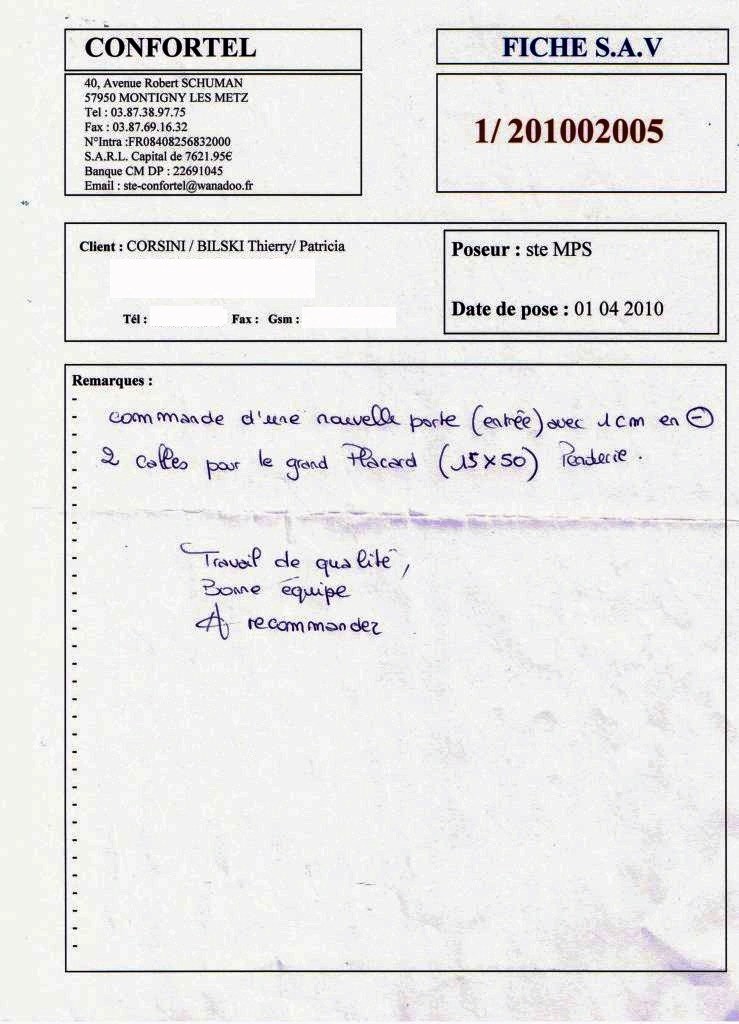 CONFORTEL
FICHE S.A.V
40, Avenue Robert SCHUMAN
57950 MONTIGNY LES METZ
Tel : 03.87.38.97.75
Fax : 03.87.69.16.32
N°Intra :FR08408256832000
S.A.R.L. Capital de 7621.95€
Banque CM DP : 22691045
Email : ste-confortel@wanadoo.fr
1/ 201002005
Client : CORSINI / BILSKI Thierry/ Patricia
Tél : Fax : Gsm :
Poseur : ste MPS
Date de pose : 01 04 2010
Remarques :
commande d'une nouvelle porte (entrée) avec 1 cm en ⊖
2 calles pour le grand Placard (15X50) Penderie.
Travail de qualité,
Bonne équipe
A recommander